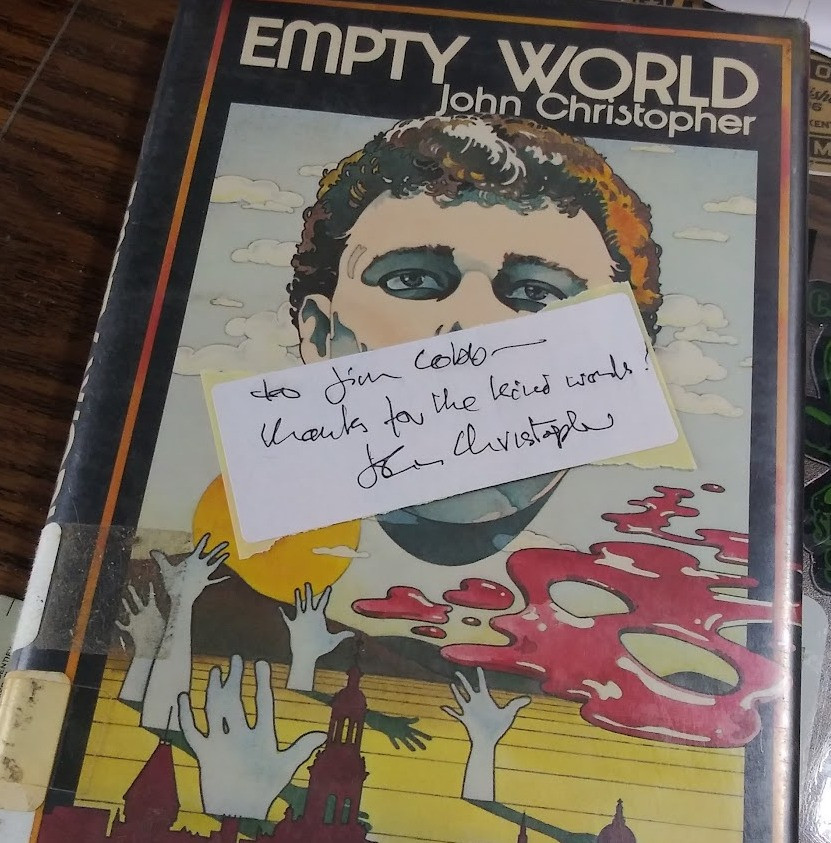 EMPTY WORLD
John Christopher
to Jim Cobb—
thanks for the kind words!
John Christopher